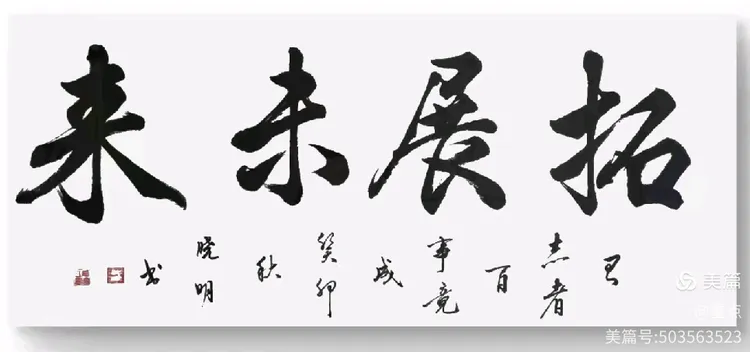 拓展未来
有志者百事竟成癸卯秋晓明书
美篇
美篇号:503563523